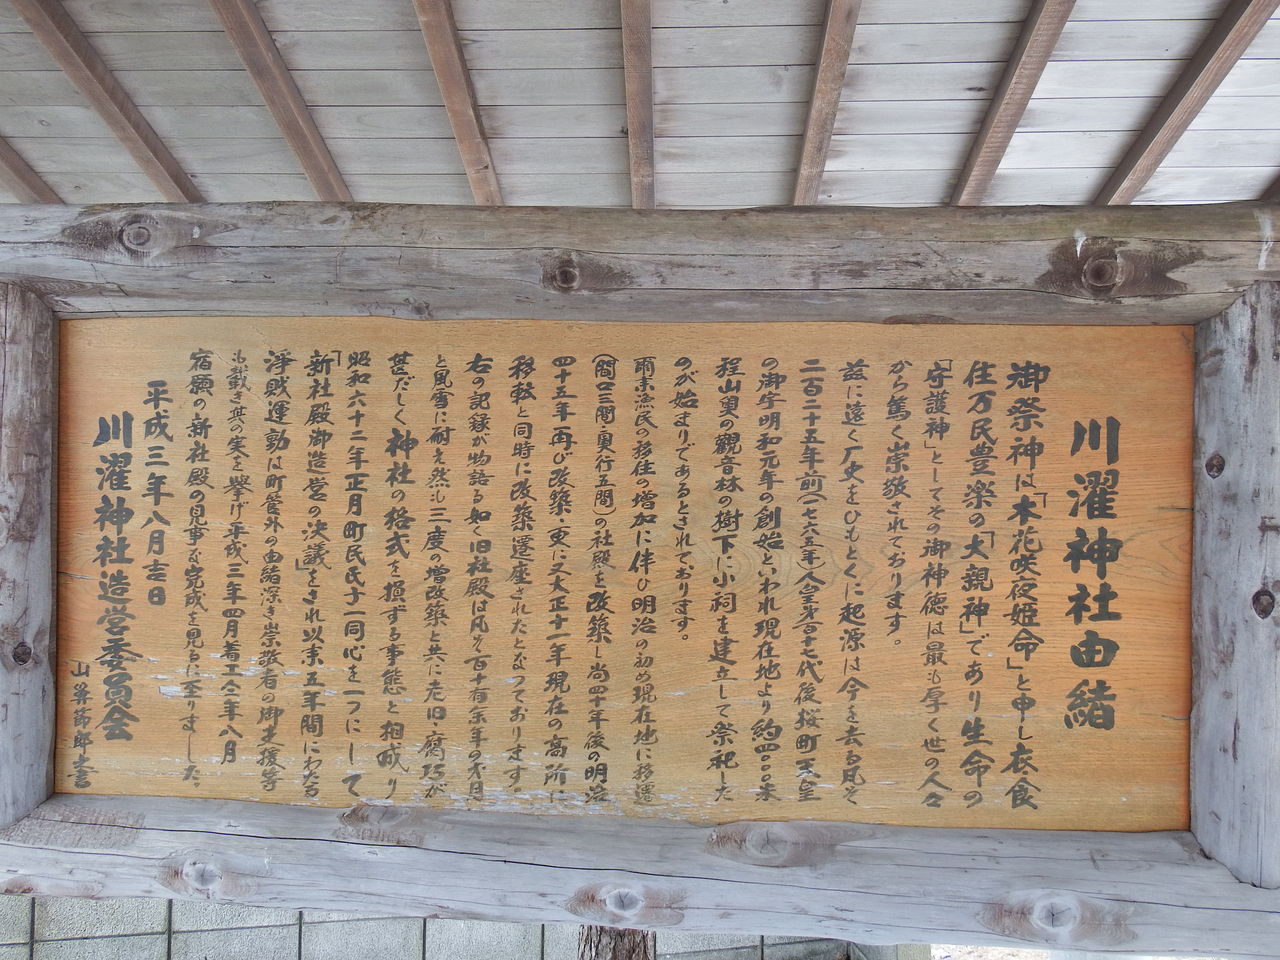 川濯神社由緒
御祭神は「木花咲夜姫命」と申し衣食
住万民豊楽の「大親神」であり生命の
「守護神」としてその御神徳は最も厚く世の人々
から篤く崇敬されております。
茲に遠く歴史をひもとくに起源は今を去る凡そ
二百二十五年前(一七六五年)人皇第百十七代後桜町天皇
の御宇明和元年の創始といわれ現在地より約四〇〇米
程山奥の観音林の樹下に小祠を建立して祭祀した
のが始まりであるとされております。
爾来漁民の移住の増加に伴ひ明治の初め現在地に移遷
(間口三間・奥行五間)の社殿を改築し尚四十年後の明治
四十五年再び改築・更に又大正十一年現在の高所に
移転と同時に改築遷座されたとなっております。
右の記録が物語る如く旧社殿は凡そ百十有余年の才月
と風雪に耐え然も三度の増改築と共に老旧・腐朽が
甚だしく神社の格式を損ずる事態と相成り
昭和六十二年正月町民氏子一同心を一つにして
「新社殿御造営の決議」をされ以来五年間にわたる
浄財運動は町管外の由緒深き崇敬者の御支援等
も戴き其の実を挙げ平成三年四月着工仝年八月
宿願の新社殿の見事な完成を見るに至りました。
平成三年八月吉日
川濯神社造営委員会